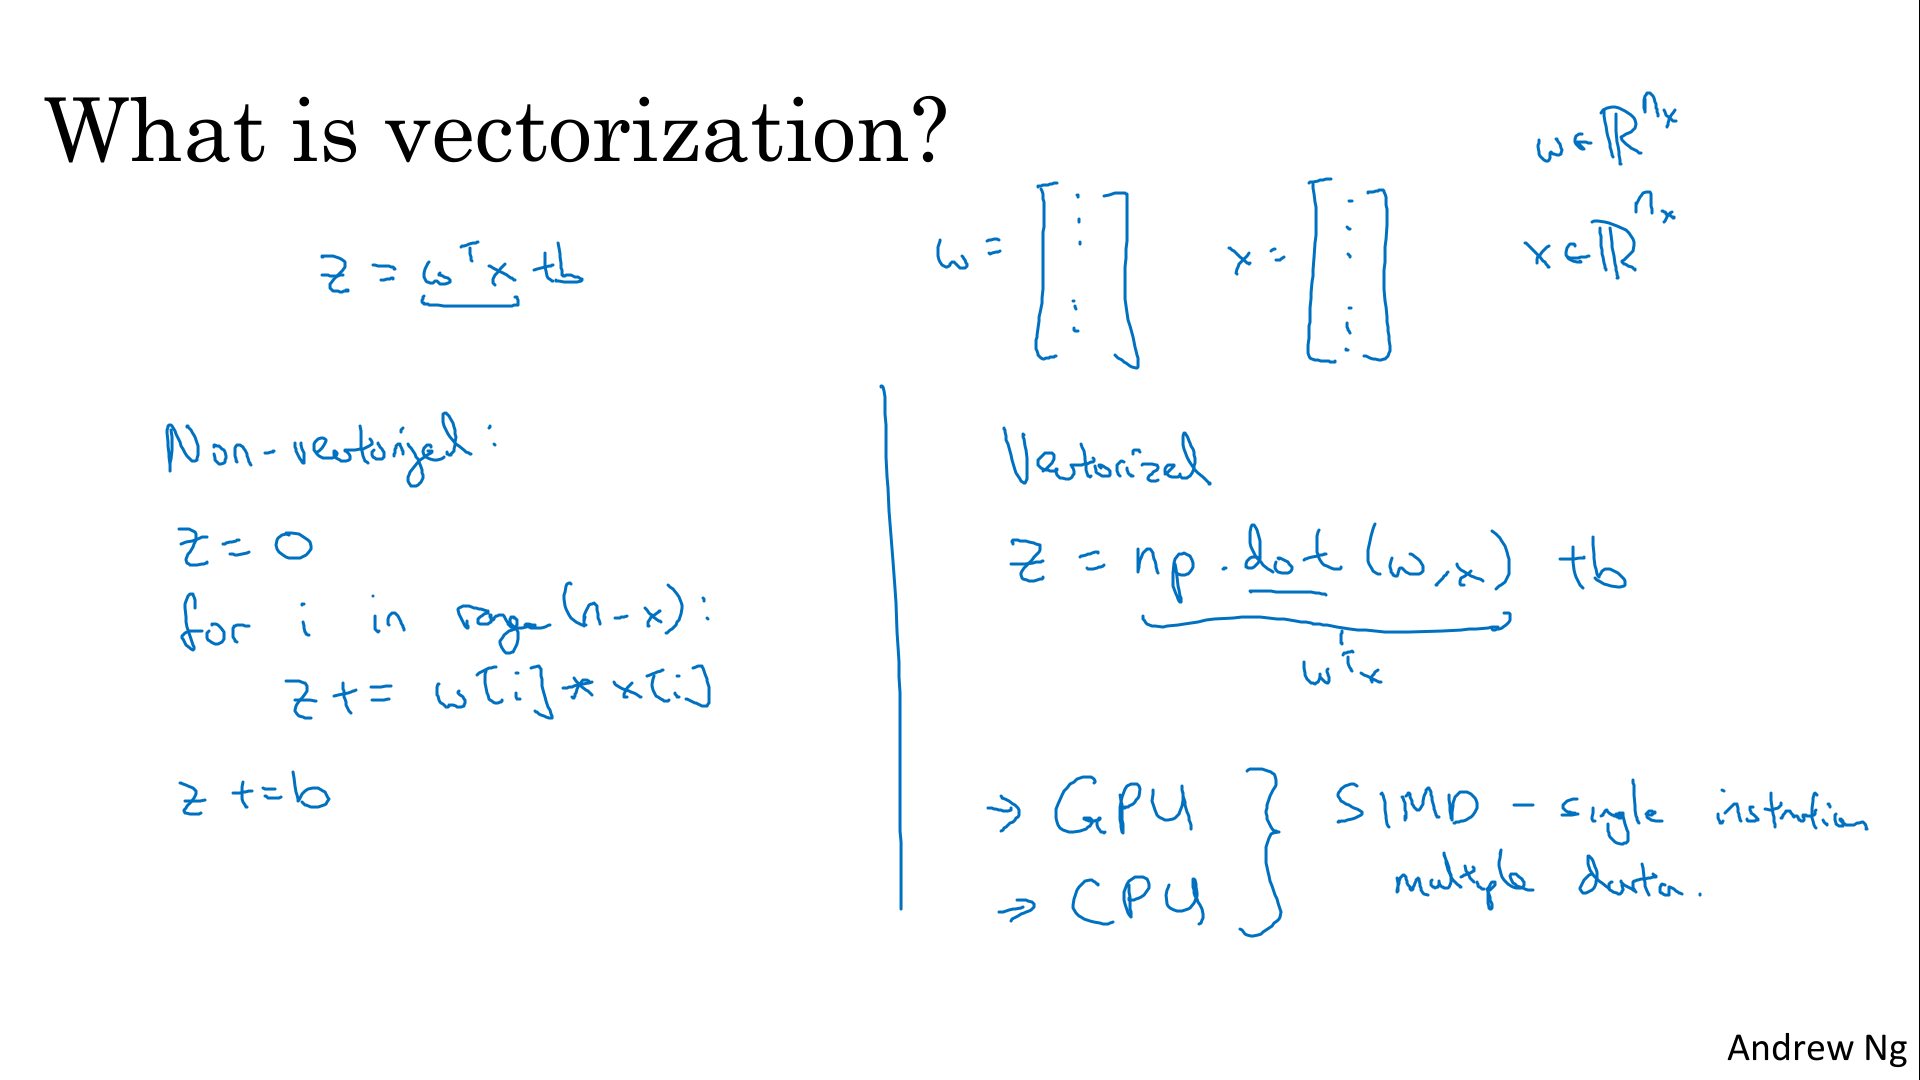 What is vectorization?
z = wᵀx + b
w = [⋮ ⋮] x = [⋮ ⋮]
w ∈ ℝⁿˣ
x ∈ ℝⁿˣ
Non-vectorized:
z = 0
for i in range(n-x):
z += w[i] * x[i]
z += b
Vectorized
z = np.dot(w,x) + b
wᵀx
→ GPU } SIMD - single instruction
→ CPU multiple data.
Andrew Ng